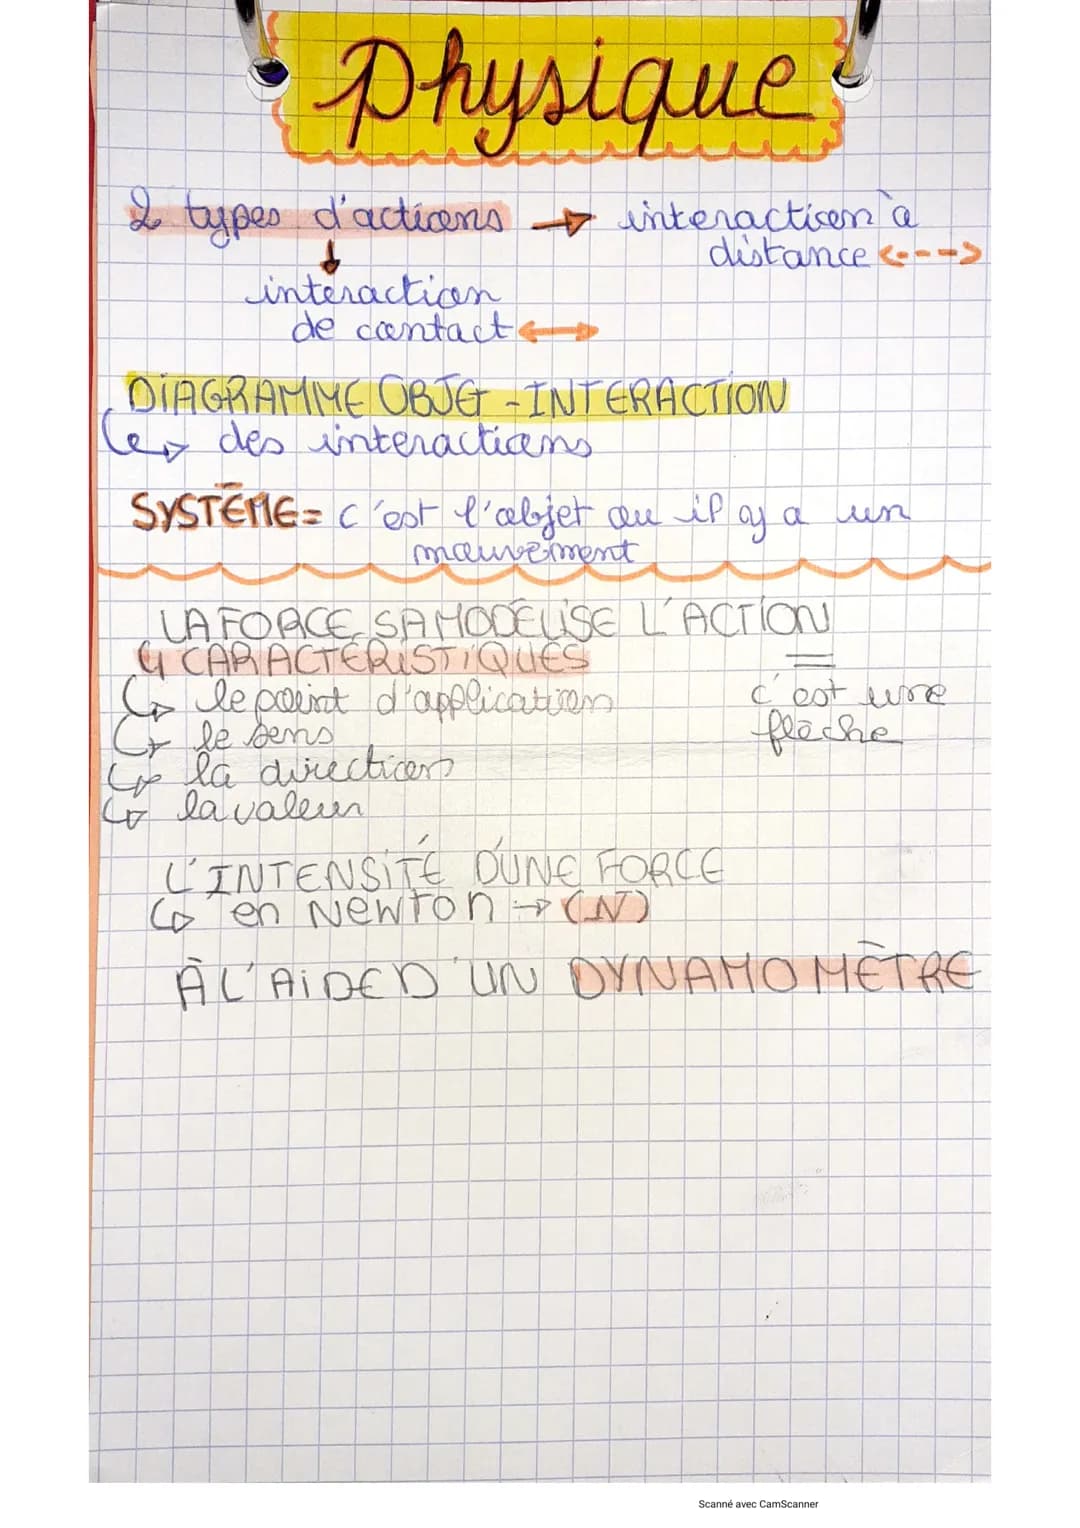 Physique
2 types d'actions → interaction à
distance <--->
↓
interaction
de contact ↔
DIAGRAMME OBJET-INTERACTION
↳ des interactions
SYSTÈME = c'est l'objet ou il y a un
mouvement
LA FORCE, SA MODÉLISE L'ACTION
4 CARACTÉRISTIQUES =
↳ le point d'application c'est une
↳ le sens flèche
↳ la direction
↳ la valeur
L'INTENSITÉ D'UNE FORCE
↳ en Newton → (N)
À L'AIDE D'UN DYNAMOMÈTRE
Scanné avec CamScanner